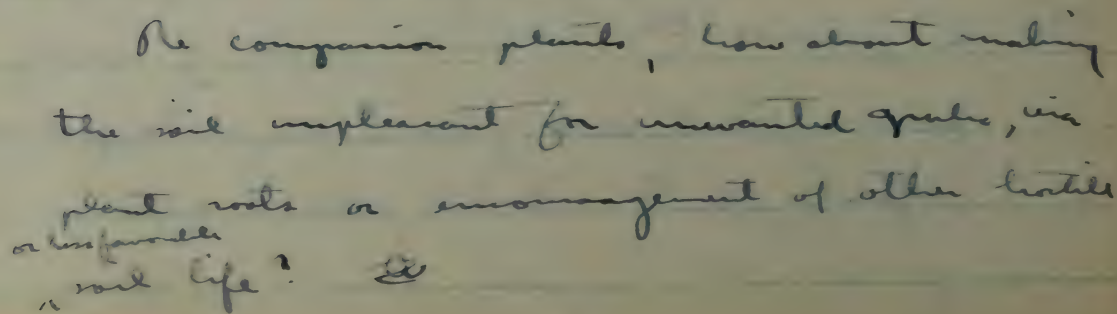 Re companion plants, how about making
the soil unpleasant for unwanted grubs, via
plant roots or encouragement of other hostile
or less favourable
^ soil life?